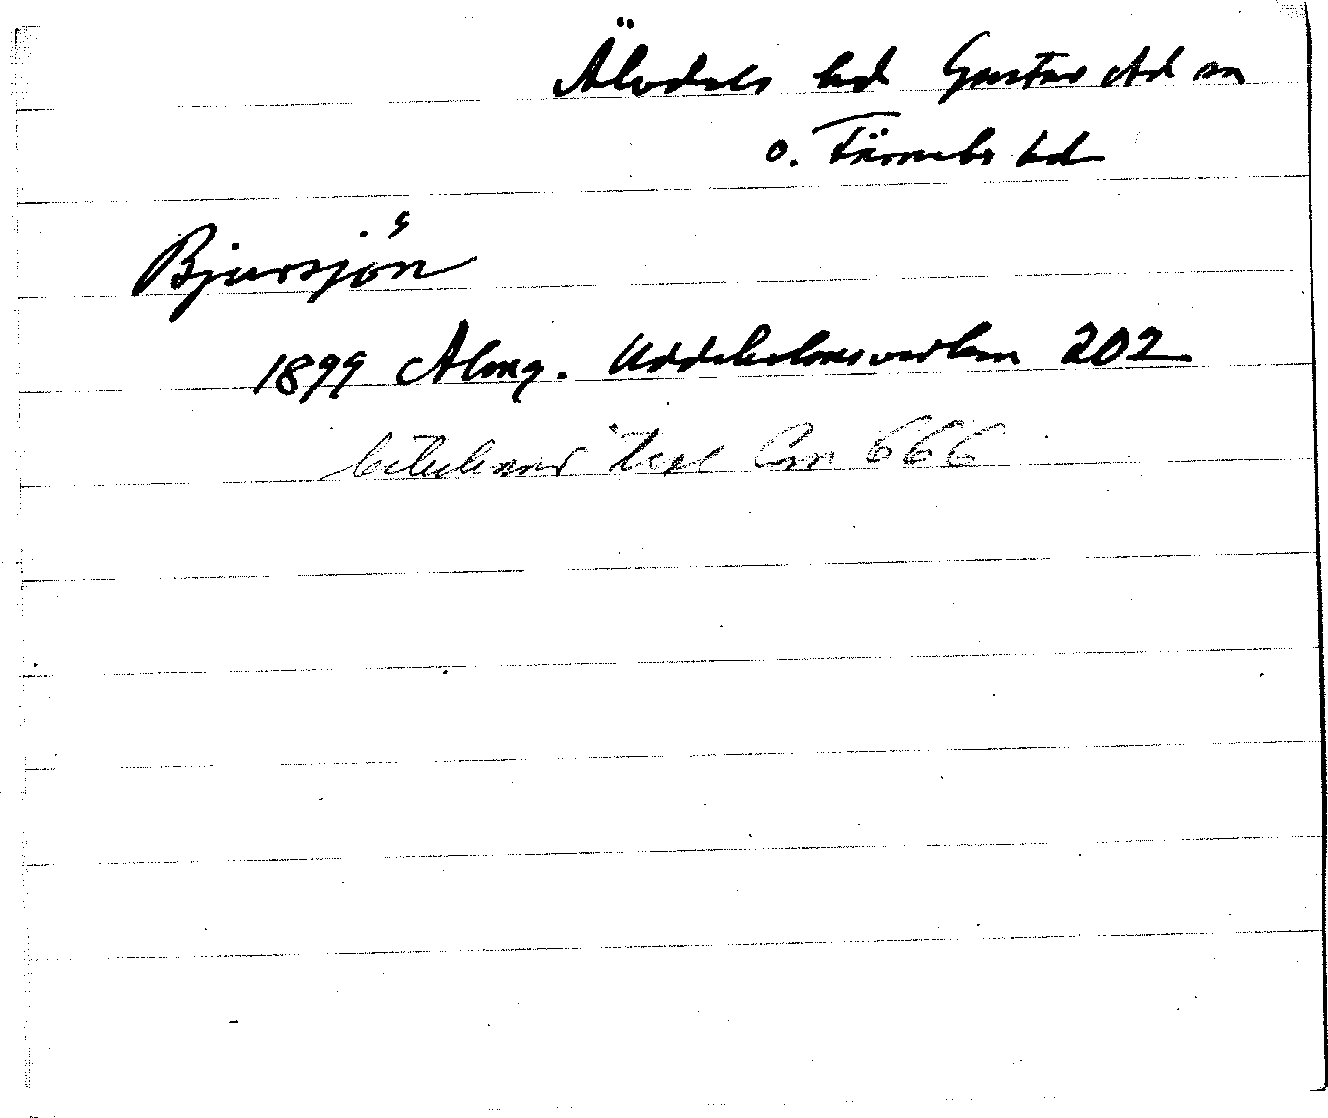 Älvdals hd Gustav Ad sn
o. Färnebo hd
Bjursjön
1899 Almq. Uddeholmsverken 202
Cm 666